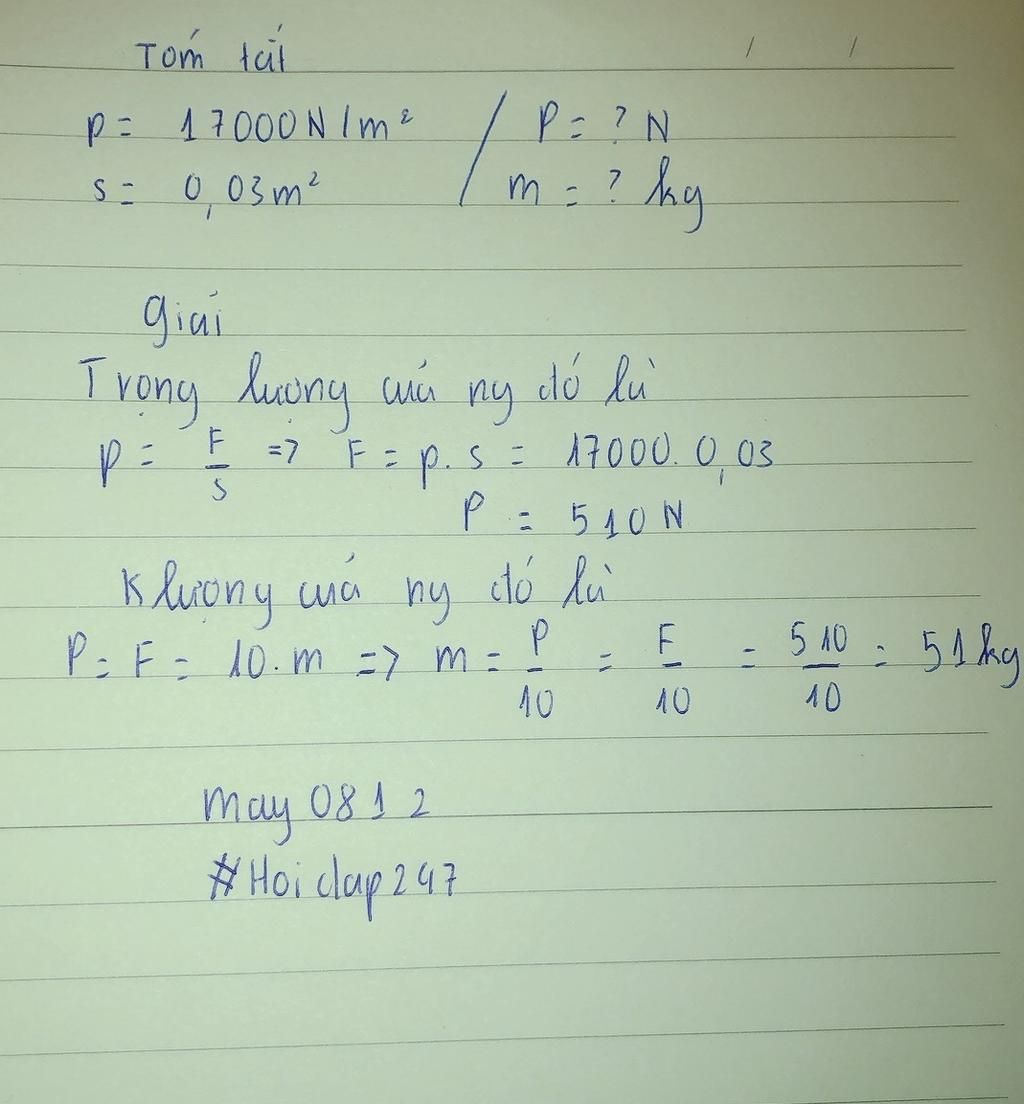 Tóm tắt
p = 17000 N/m² / P = ? N
s = 0,03m² / m = ? kg
Giải
Trọng lượng cuả ny đó là
p = F/s => F = p.s = 17000.0,03
P = 510 N
K lượng cuả ny đó là
P = F = 10.m => m = P/10 = F/10 = 510/10 = 51kg
may 0812
#Hoidap247